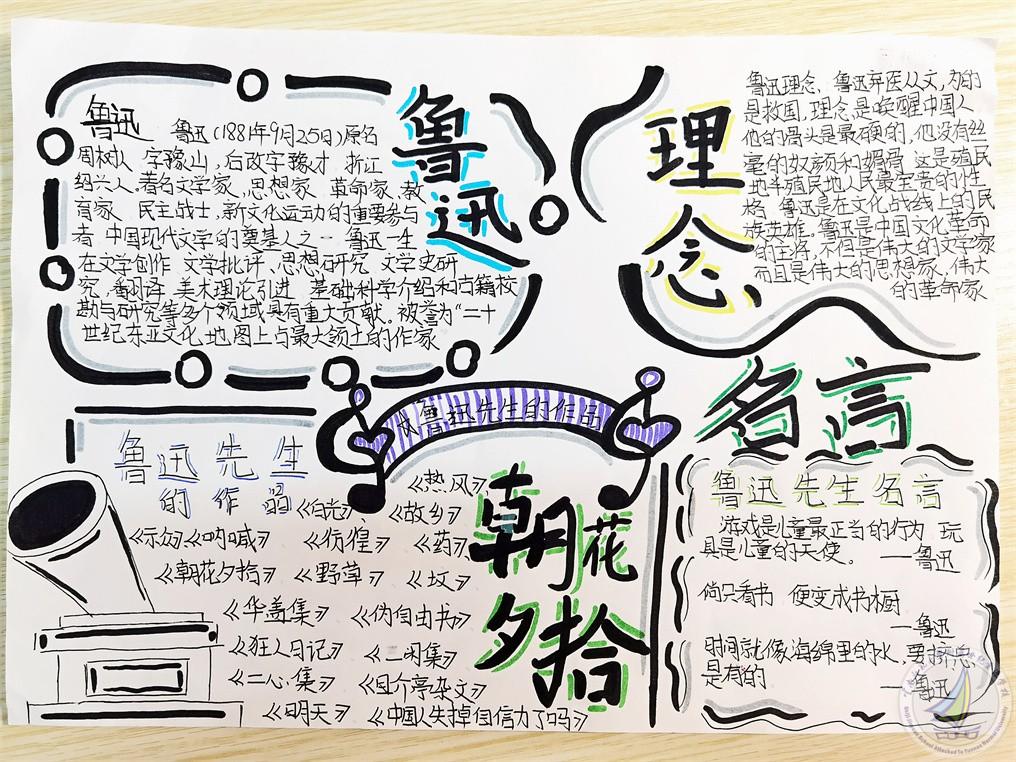 鲁迅
鲁迅
鲁迅(1881年9月25日)原名
周树人 字豫山,后改字豫才 浙江
绍兴人.著名文学家、思想家 革命家、教
育家 民主战士,新文化运动的重要参与
者 中国现代文学的奠基人之一 鲁迅一生
在文学创作 文学批评、思想研究 文学史研
究,翻译 美术理论引进 基础科学介绍和古籍校
勘与研究等多个领域具有重大贡献。被誉为“二十
世纪东亚文化地图上占最大领土的作家
理念
鲁迅理念、鲁迅弃医从文,为的
是救国,理念是唤醒中国人
他的骨头是最硬的,他没有丝
毫的奴颜和媚骨 这是殖民
地半殖民地人民最宝贵的性
格 鲁迅是在文化战线上的民
族英雄。鲁迅是中国文化革命
的主将,不但是伟大的文学家
而且是伟大的思想家,伟大
的革命家
鲁迅先生的作品
鲁迅先生
的作品
《热风》
《白光》 《故乡》
《示众》《呐喊》 《彷徨》 《药》
《朝花夕拾》 《野草》 《坟》
《华盖集》 《伪自由书》
《狂人日记》 《二闲集》
《二心集》 《且介亭杂文》
《明天》 《中国人失掉自信力了吗》
朝花
夕拾
名言
鲁迅先生名言
游戏是儿童最正当的行为 玩
具是儿童的天使。 —鲁迅
倘只看书 便变成书橱
—鲁迅
时间就像海绵里的水,要挤总
是有的 —鲁迅